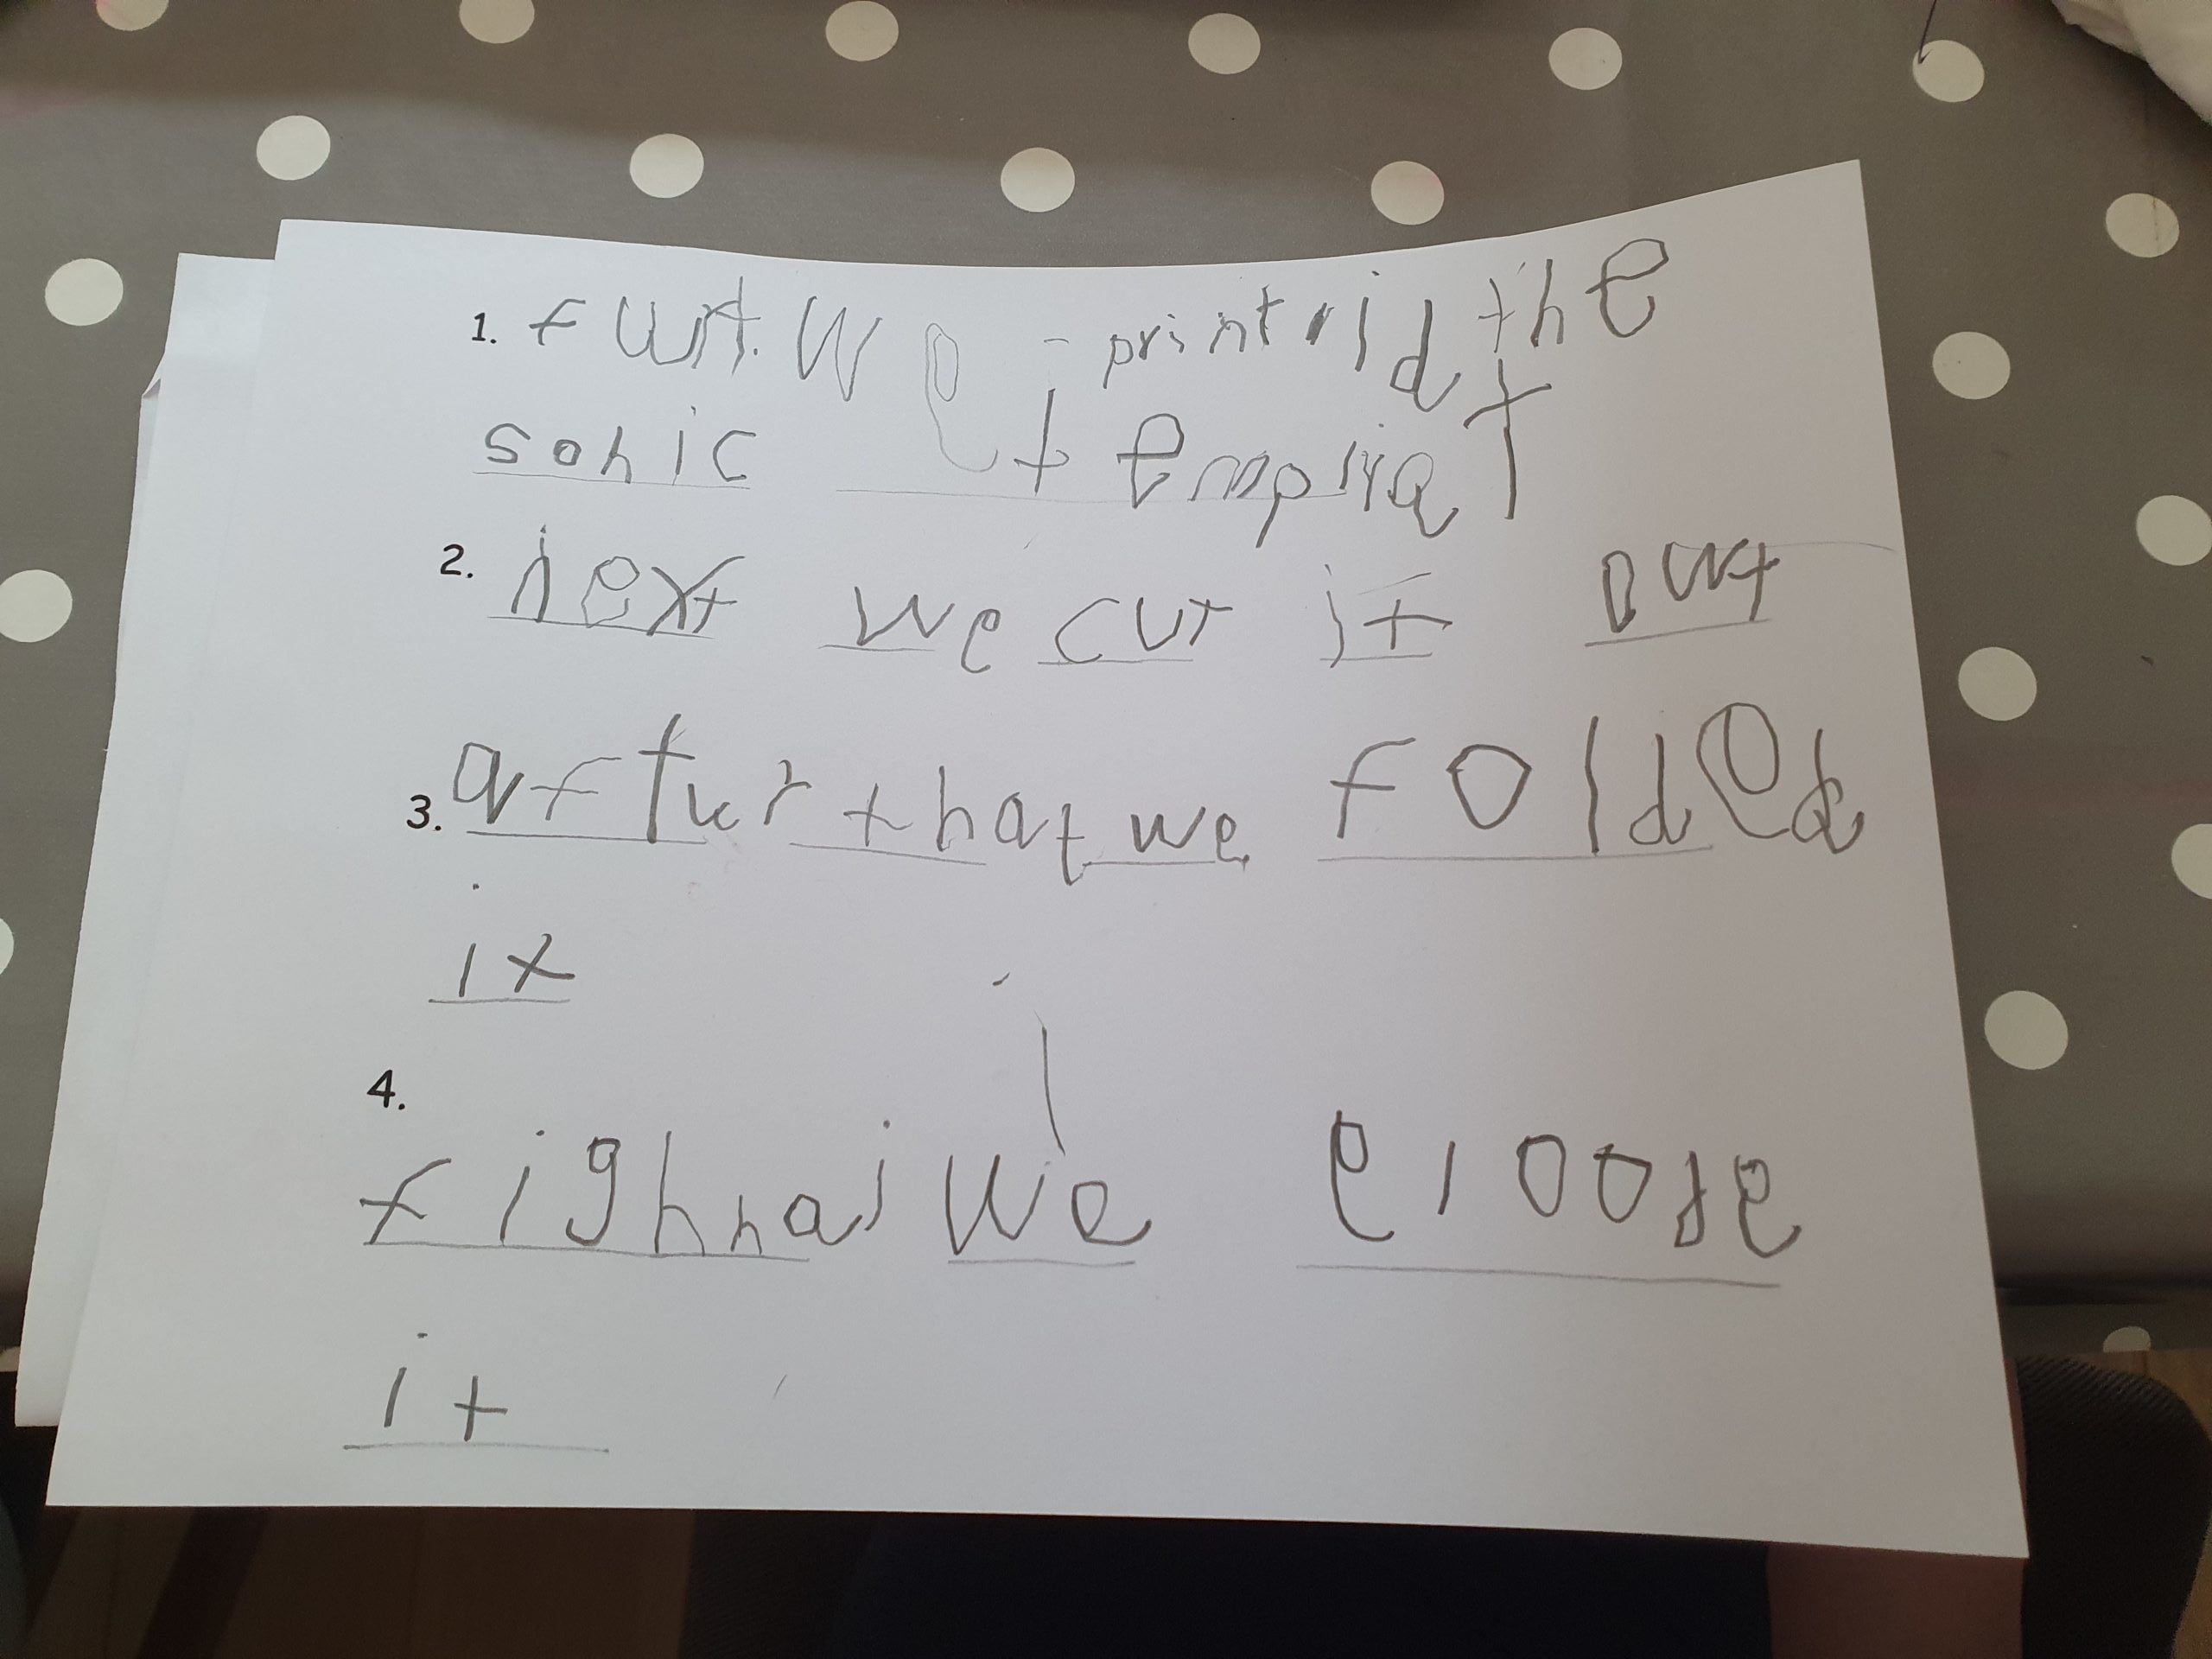 1. furt we printid the
sonic templat
2. next we cut it out
3. aftur that we folded
it
4.
fighnai we
it